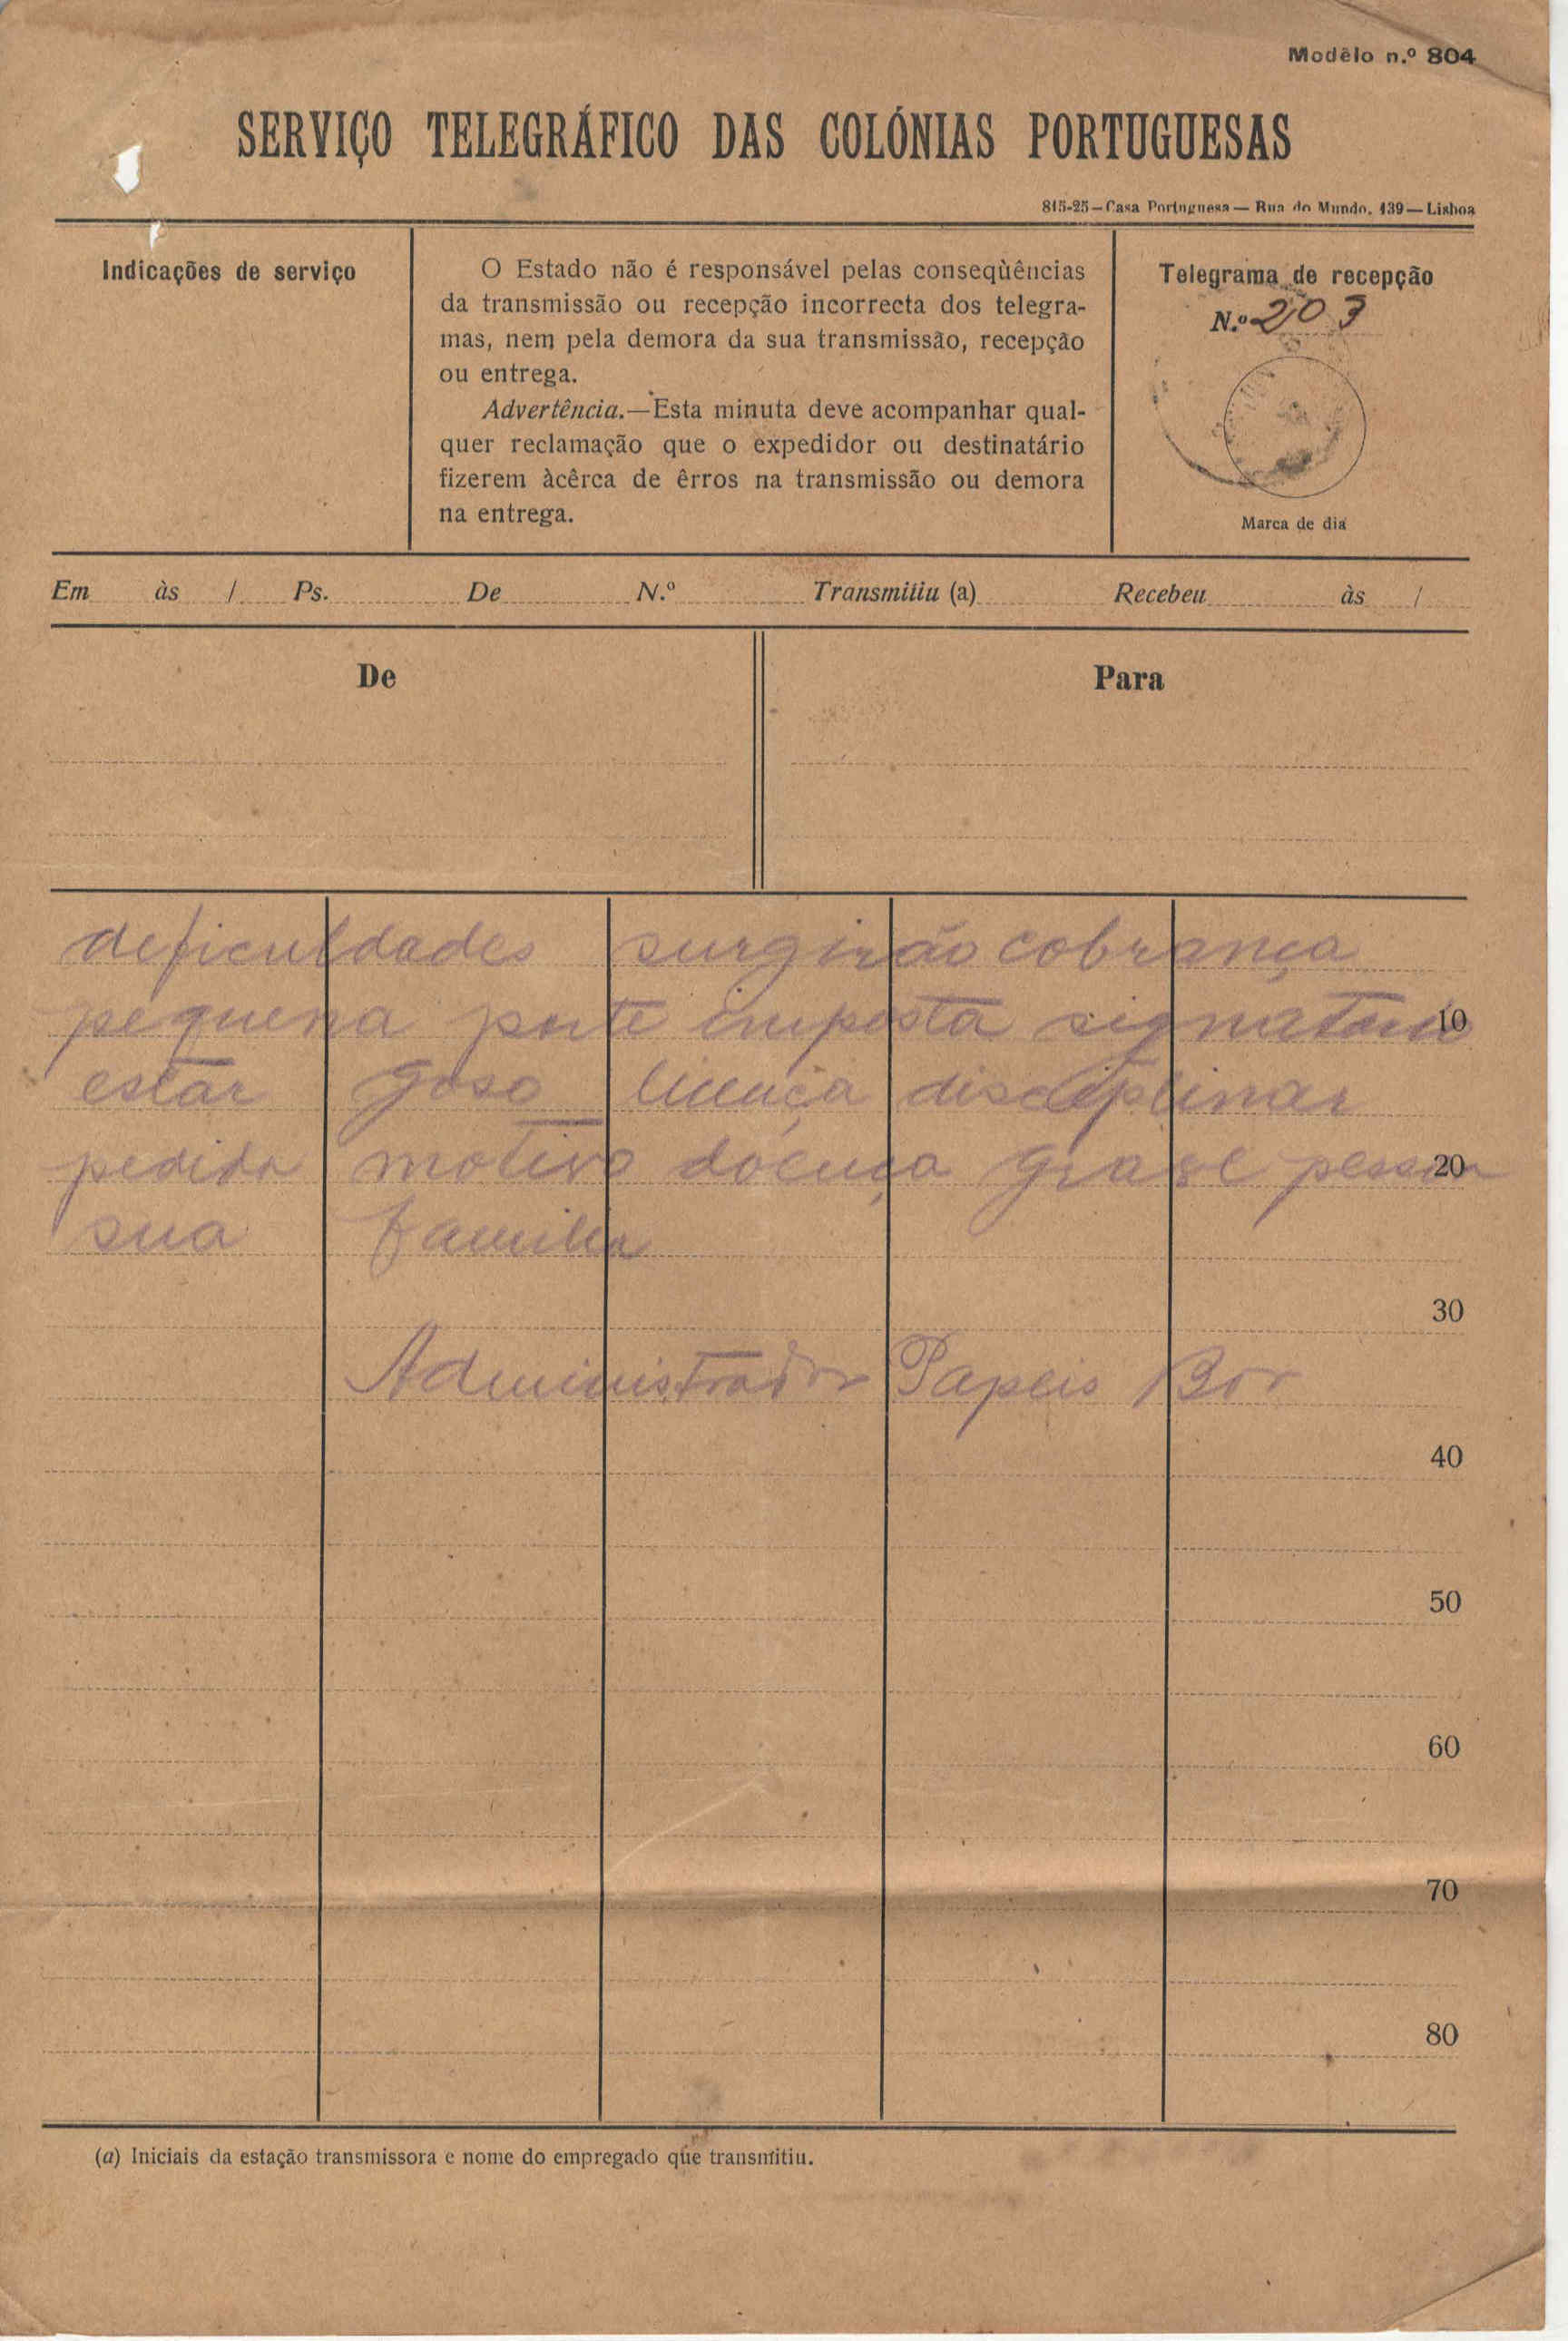 Modêlo n.º 804
SERVIÇO TELEGRÁFICO DAS COLÓNIAS PORTUGUESAS
815-25—Casa Portuguesa—Rua do Mundo, 139—Lisboa
Indicações de serviço
O Estado não é responsável pelas conseqùências
da transmissão ou recepção incorrecta dos telegra-
mas, nem pela demora da sua transmissão, recepção
ou entrega.
Advertência.—Esta minuta deve acompanhar qual-
quer reclamação que o expedidor ou destinatário
fizerem àcêrca de êrros na transmissão ou demora
na entrega.
Telegrama de recepção
N.º 203
Marca de dia
Em às / Ps. De N.º Transmitiu (a) Recebeu às /
De
Para
deficuldades surgirão cobrança
pequena parte imposta 10
estar goso licença disciplinar
pedida motivo doença grave pessoa 20
sua familia
30
Administrador Papeis Bor
40
50
60
70
80
(a) Iniciais da estação transmissora e nome do empregado que transmitiu.